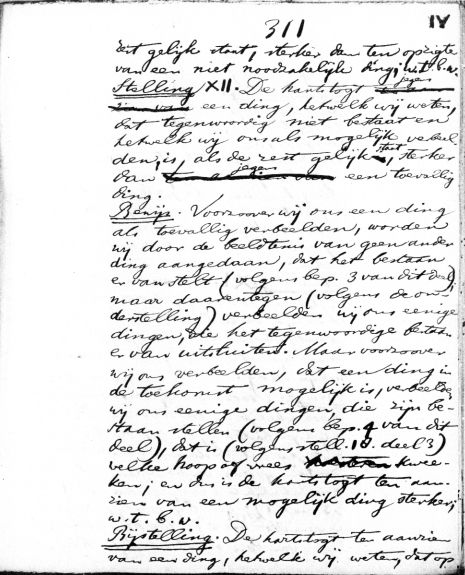 311
IV
rest gelijk staat, sterker dan ten opzigte
van een niet noodzakelijk ding; w.t.b.w.
Stelling XII. De hartstogt jegens
een ding, hetwelk wij weten,
dat tegenwoordig niet bestaat en
hetwelk wij ons als mogelijk verbeel
den, is, als de rest gelijk staat, sterker
dan jegens een toevallig
ding.
Bewijs. Voorzoover wij ons een ding
als toevallig verbeelden, worden
wij door de beeldtenis van geen ander
ding aangedaan, dat het bestaan
er van stelt (volgens bep. 3 van dit deel)
maar daarentegen (volgens de on-
derstelling) verbeelden wij ons eenige
dingen, die het tegenwoordige bestaan
er van uitsluiten. Maar voorzoover
wij ons verbeelden, dat een ding in
de toekomst mogelijk is, verbeelden
wij ons eenige dingen, die zijn be-
staan stellen (volgens bep. 4 van dit
deel), dat is (volgens stell. 18. deel 3)
welke hoop of vrees kwee-
ken; en dus is de hartstogt ten aan-
zien van een mogelijk ding sterker;
w.t.b.w.
Bijstelling. De hartstogt ten aanzien
van een ding, hetwelk wij weten, dat op